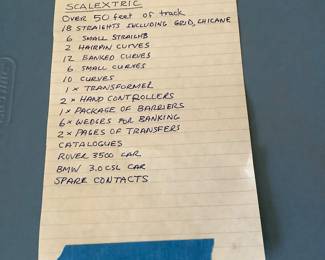 SCALEXTRIC
OVER 50 feet of track
18 STRAIGHTS INCLUDING GRID, CHICANE
6 SMALL STRAIGHTS
2 HAIRPIN CURVES
12 BANKED CURVES
6 SMALL CURVES
10 CURVES
1 x TRANSFORMER
2 x HAND CONTROLLERS
1 x PACKAGE OF BARRIERS
6 x WEDGES FOR BANKING
2 x PAGES OF TRANSFERS
CATALOGUES
ROVER 3500 CAR
BMW 3.0 CSL CAR
SPARE CONTACTS